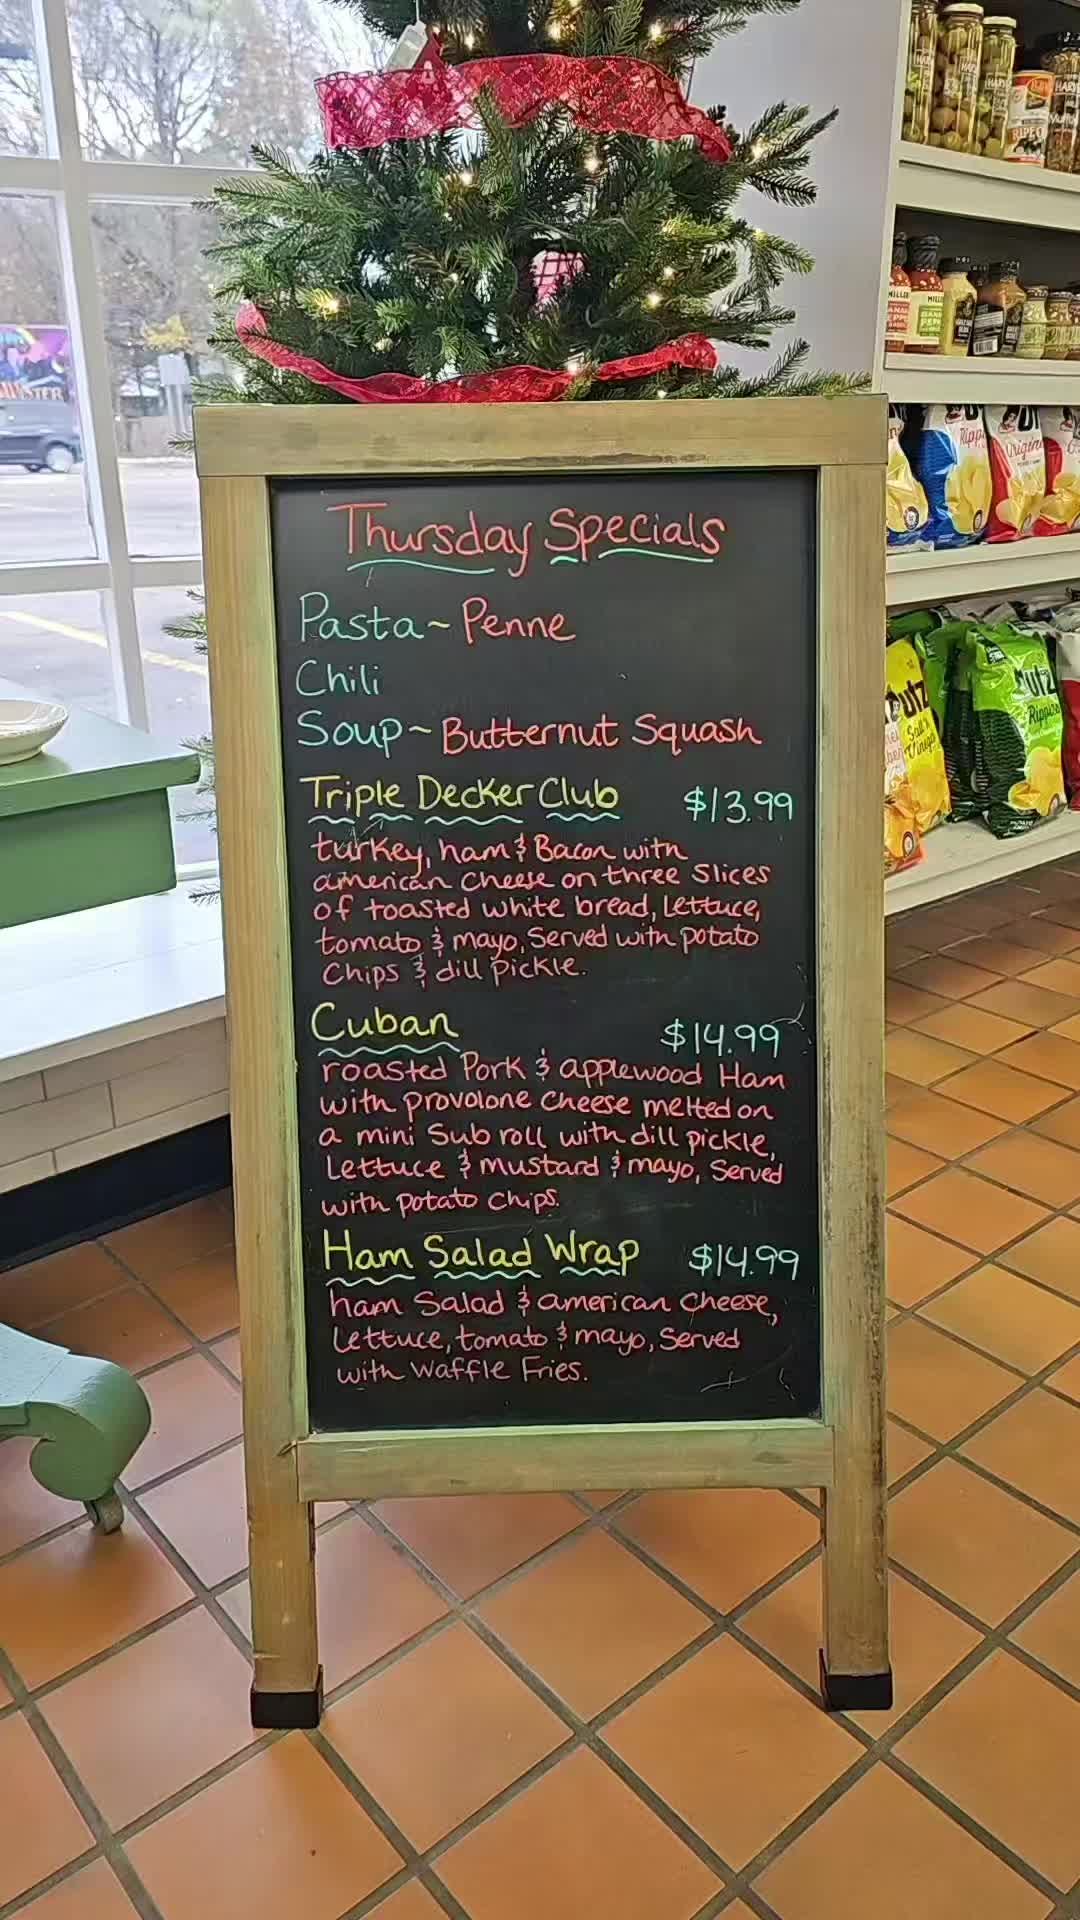 Thursday Specials
Pasta ~ Penne
Chili
Soup ~ Butternut Squash
Triple Decker Club $13.99
turkey, ham & Bacon with
american cheese on three slices
of toasted white bread, lettuce,
tomato & mayo, Served with potato
Chips & dill pickle.
Cuban $14.99
roasted Pork & applewood Ham
with provolone cheese melted on
a mini Sub roll with dill pickle,
Lettuce & mustard & mayo, Served
with potato chips.
Ham Salad Wrap $14.99
ham Salad & american cheese,
Lettuce, tomato & mayo, Served
with Waffle Fries.
RIPE
Original
utz
Salt 'n Vinegar
utz